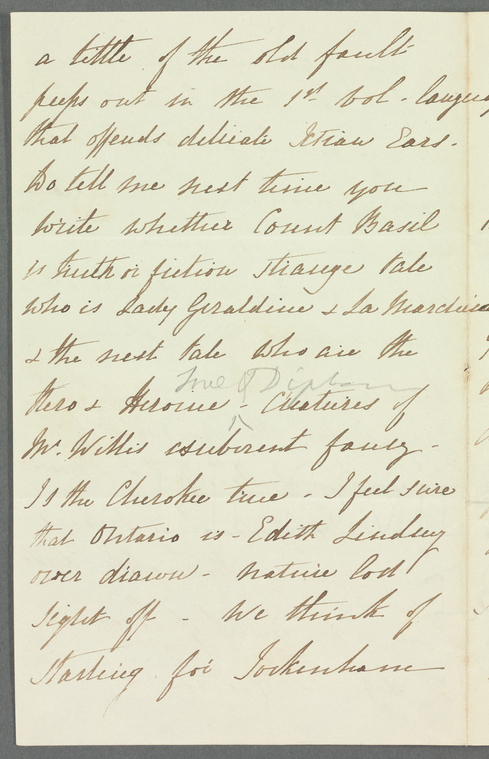 a little of the old fault
peeps out in the 1st Vol - langua
that offends delicate Xtian Ears -
Do tell me next time you
write whether Count Basil
is truth or fiction strange tale
who is Lady Geraldine & La Marchesa
& the next tale who are the
Love & Diplom
Hero & Heroine - Creatures of
Mr. Willis exuberent fancy -
Is the Cherokee true - I feel sure
that Ontario is - Edith Lindsey
over drawn - nature lost
sight off - We think of
starting for Tockenham